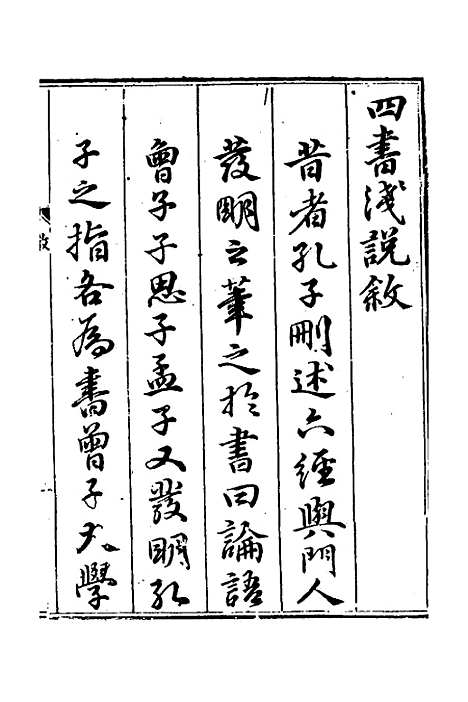 四書淺說敘
昔者孔子刪述六經與門人
發明之筆之於書曰論語
曾子子思子孟子又發明孔
子之指各為書曾子大學
敘
一